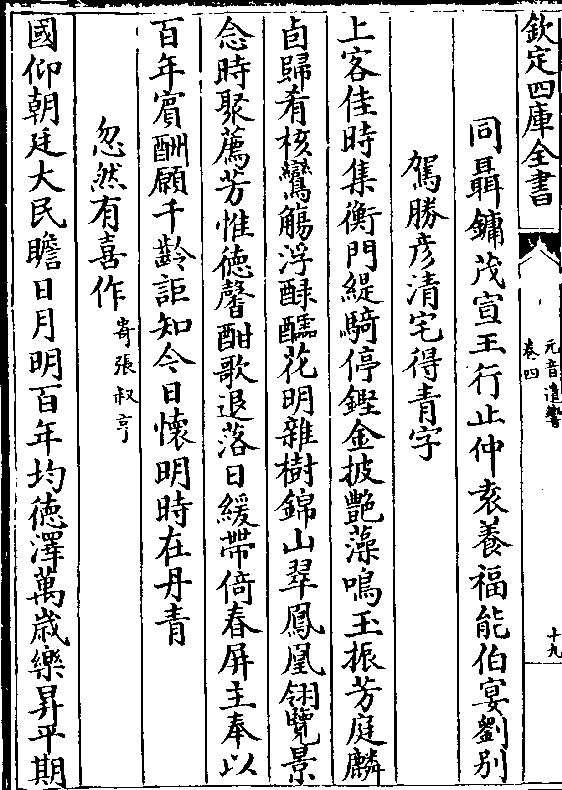 欽定四庫全書
元音遺響
卷四
十九
同聶鏞茂宣王行止仲袁養福能伯宴劉别
駕勝彦清宅得青字
上客佳時集衡門緹騎停鏗金披艶藻鳴玉振芳庭麟
卣歸肴核鸞觴浮醁醽花明雜樹錦山翠鳳凰翎覽景
念時聚薦芳惟徳馨酣歌退落日緩帶倚春屏主奉以
百年賓酬願千齡詎知今日懷明時在丹青
忽然有喜作
寄張叔亨
國仰朝廷大民瞻日月明百年均徳澤萬歲樂昇平期